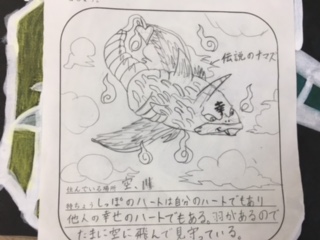 伝説のナマズ
住んでいる場所 空、川
特ちょう しっぽのハートは自分のハートでもあり
他人の幸せのハートでもある。羽があるので
たまに空に飛んで見守っている。